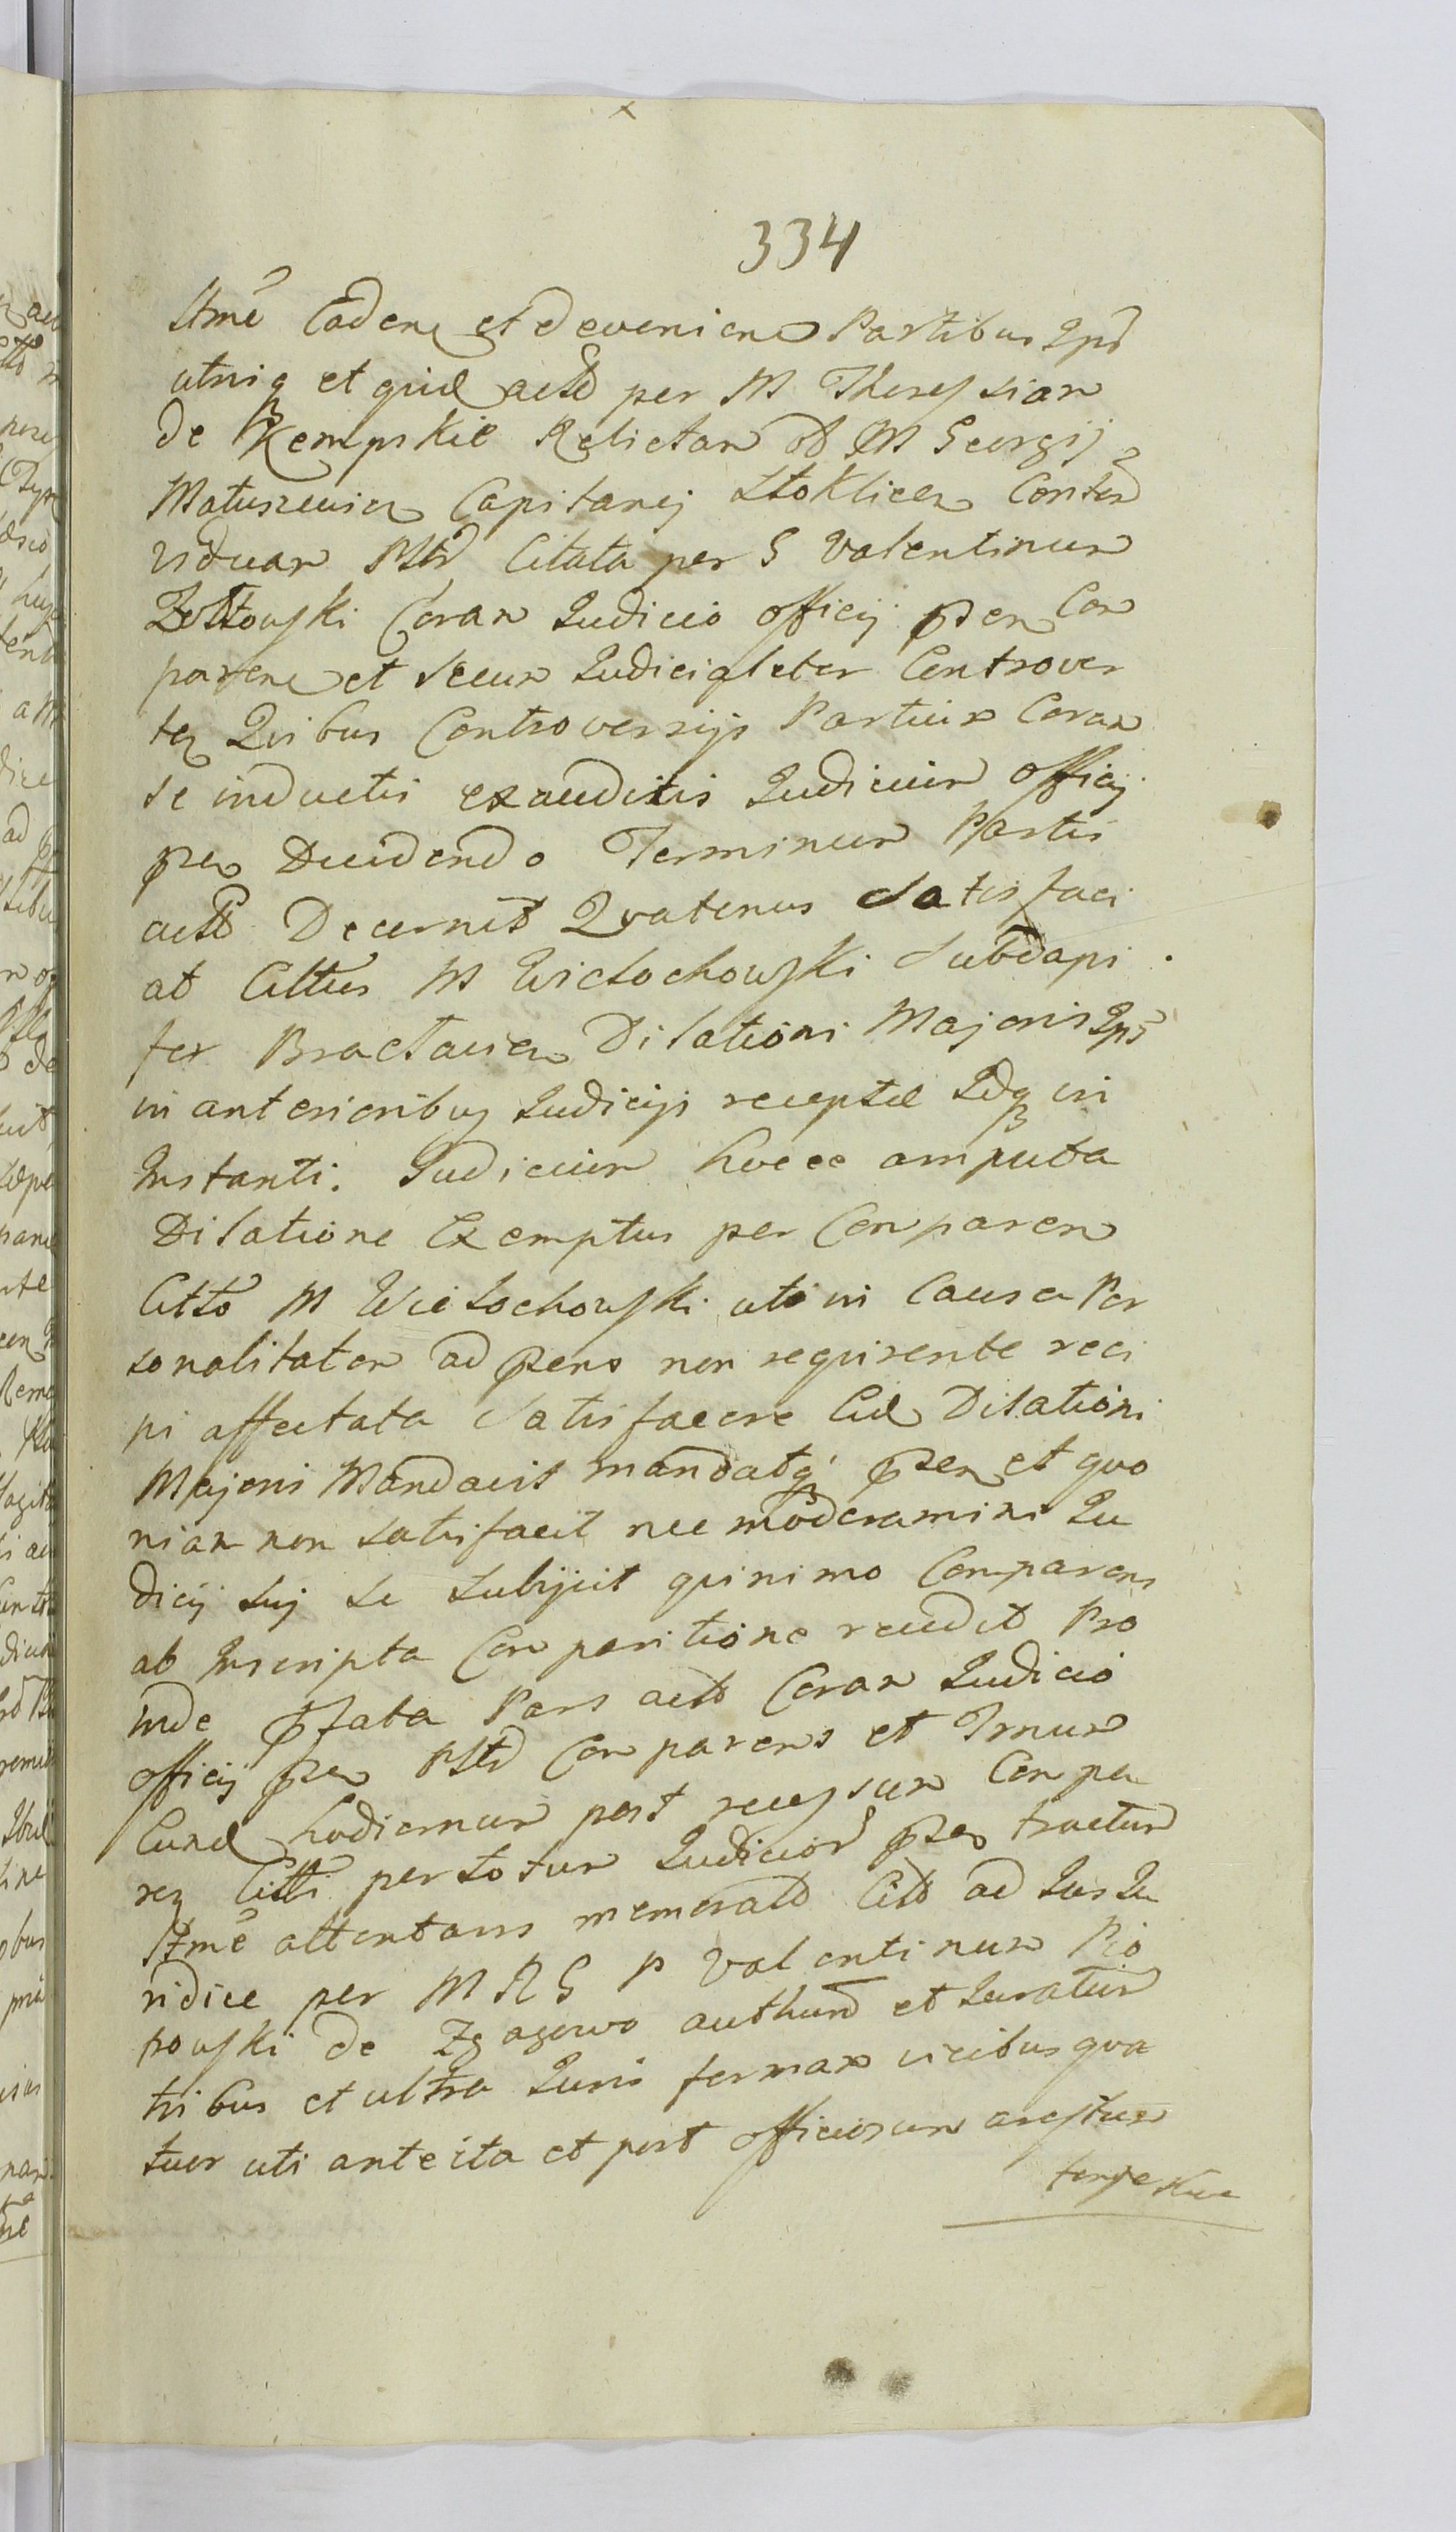 334
Ltmē Caden et devenien Partibus Ips
utriq et quid actō per M Theressiam
de Kempskie Relictam ōb M Georgij
Matuszewicz Capitanej Stoklicen Consor
viduam Pltr Citata per G Valentinum
Zołtowski Coram Iudicio officij prn Com
paren et secum Iudicialiter Controver
ten Quibus Controversijs Partium Coram
se inductis exauditis Iudicium officij
prn Decidendo Terminum Partis
actō Decernit Quatenus satisfaci
at Cittus M Wiełochowski Subdapi
fer Braclavien Dilationi Majoris Ips
in anterioribus Iudicijs receptæ Idq in
Instanti. Iudicium hocce amputa
Dilatione Exemptus per Comparen
Cittō M Wiełochowski uti in Causa Per
sonalitatem ad prns non requirente reci
pi affectata satisfacere Eid Dilationi
Majori Mandavit mandatq prn et quo
niam non satisfacit nec moderamini Iu
dicij sui se subijcit quinimo Comparens
ab Inscripta Comparitione recedit Pro
inde pfata Pars actō Coram Iudicio
officij prn Pltr Comparens et Trnum
Eund hodiernum post recessum Compa
ren Citti per totum Iudicior prn tractum
Ltmē attentans memoratō Cittō ad Ius Iu
ridice per M R G P Valentinum Pio
powski de Zgagowo authum et Iuratum
tribus et ultra Iuris formam vicibus qua
tuor uti ante ita et post officiosum arestum